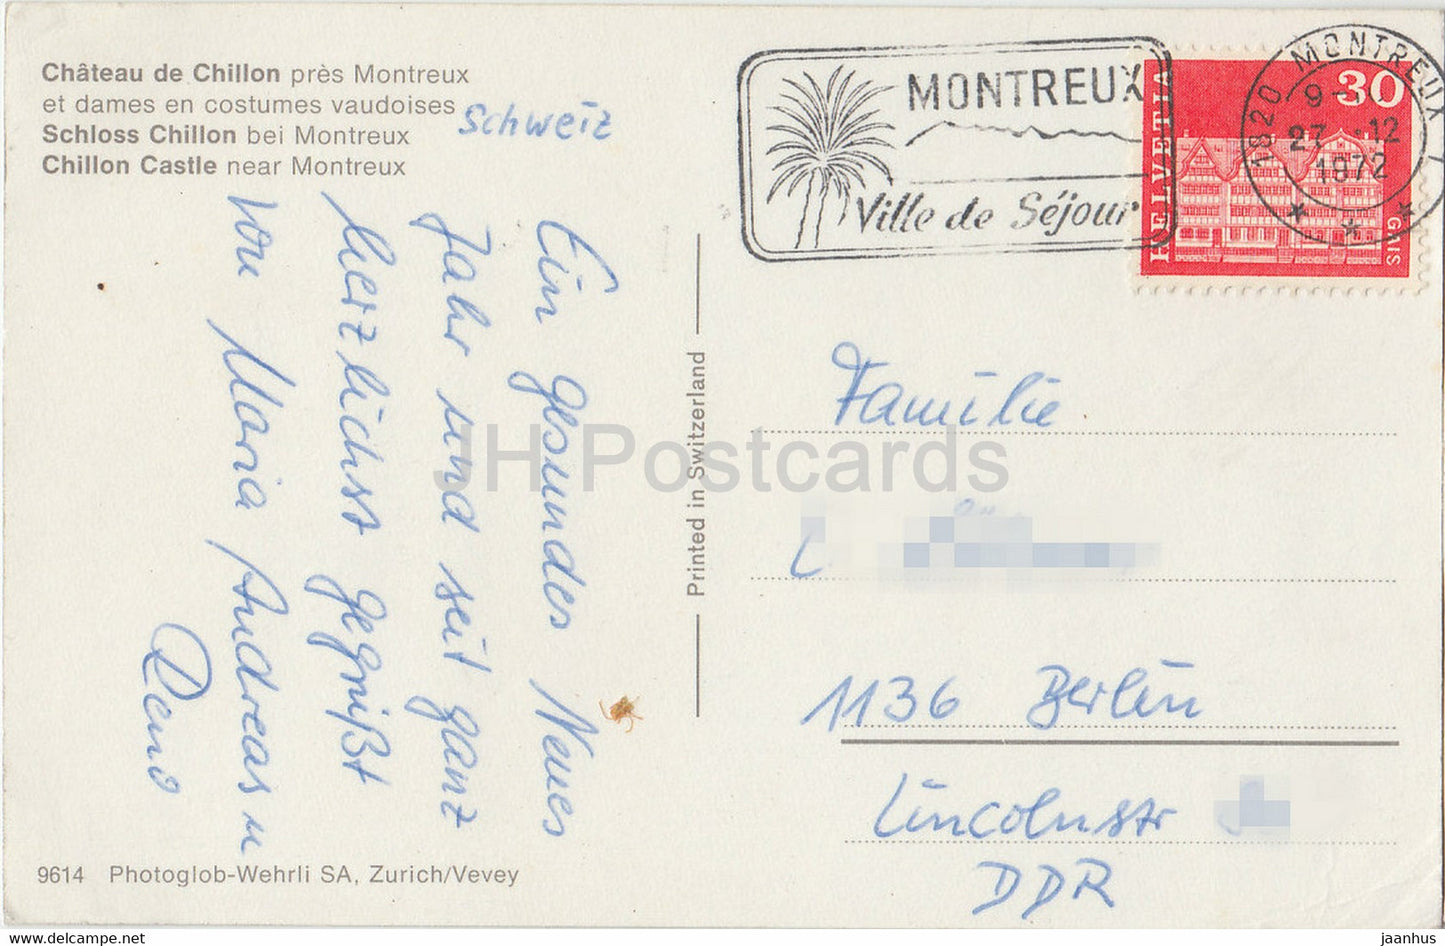 Château de Chillon près Montreux
et dames en costumes vaudoises
Schloss Chillon bei Montreux
Chillon Castle near Montreux
Schweiz
Ein gesundes Neues
Jahr und seit ganz
herzlichst gegrüßt
von Maria Andreas u
9614 Photoglob-Wehrli SA, Zurich/Vevey
Printed in Switzerland
MONTREUX
Ville de Séjour
HELVETIA
30
GAIS
1820 MONTREUX 1
27 12
1972
Familie
1136 Berlin
Lincolnstr
DDR
JH Postcards
www.delcampe.net
jaanhus